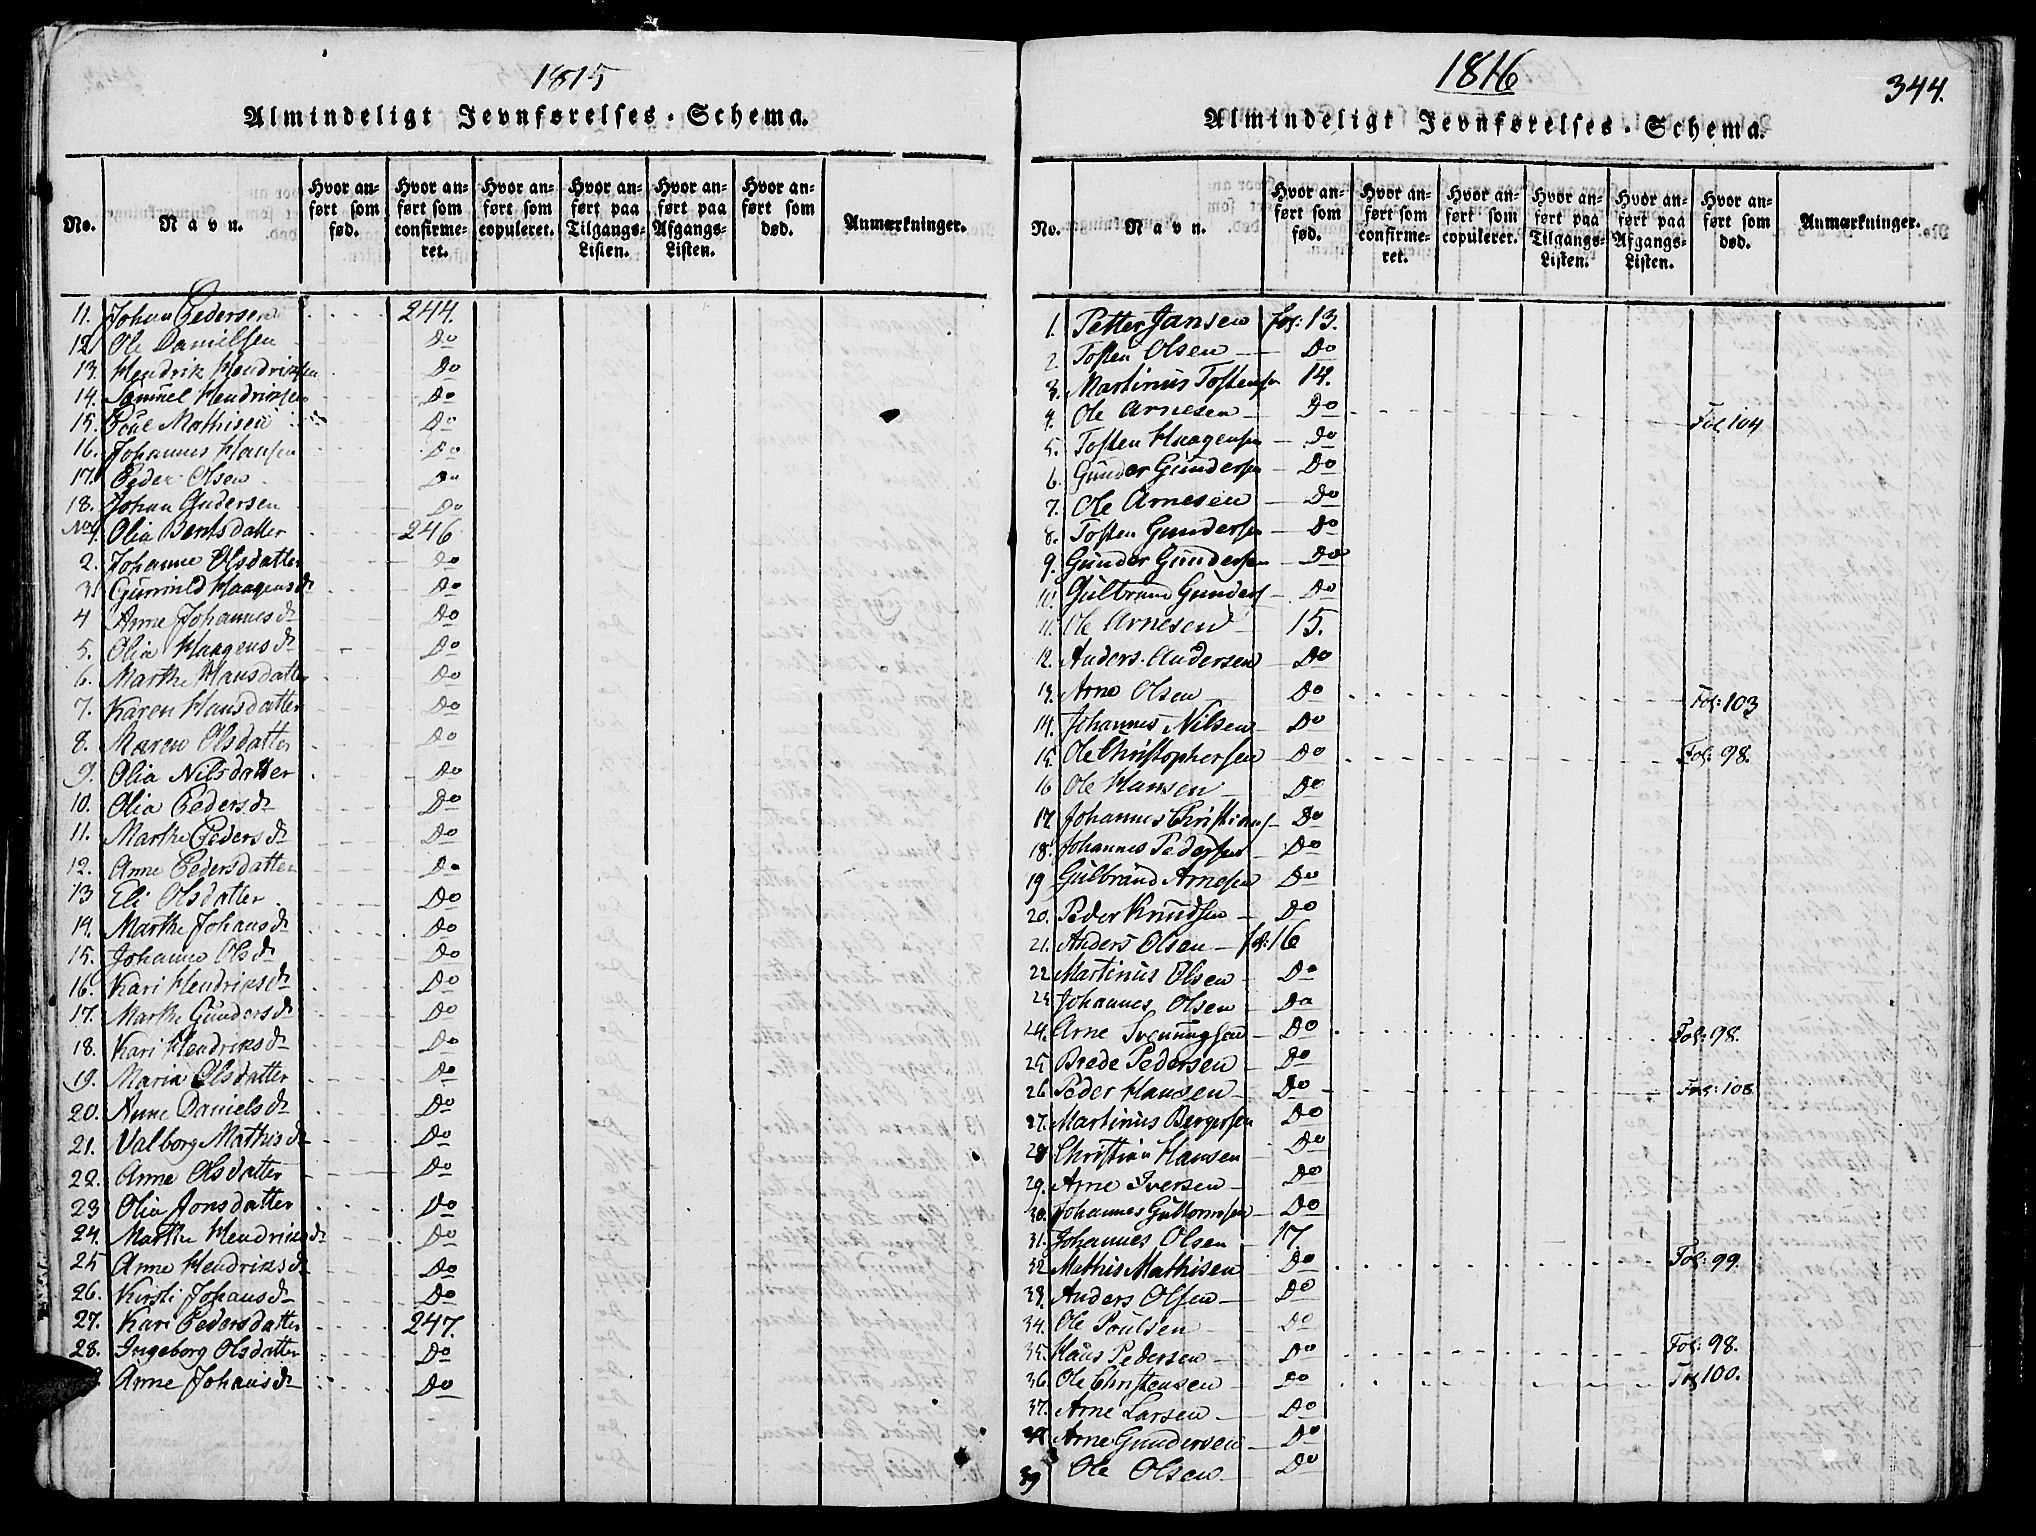 1815
Almindeligt Jevnførelses-Schema.
No. Navn. Hvor anført som fød. Hvor anført som confirmeret. Hvor anført som copuleret. Hvor anført paa Tilgangs-Listen. Hvor anført paa Afgangs-Listen. Hvor anført som død. Anmærkninger.
11. Johan Pedersen 244.
12 Ole Danielsen Do
13. Hendrik Hendriksen Do
14. Samuel Hendriksen Do
15. Poul Mathisen Do
16. Johannes Hansen Do
17. Peder Olsen Do
18. Johan Andersen Do
No 1. Olia Bentsdatter 246
2. Johanne Olsdatter Do
3. Gunnild Haagensdr Do
4 Anne Johannesdr Do
5. Olia Haagensdr Do
6. Marthe Hansdatter Do
7. Karen Hansdatter Do
8. Maren Olsdatter Do
9. Olia Nilsdatter Do
10. Olia Pedersdr Do
11. Marthe Pedersdr Do
12. Anne Pedersdatter Do
13 Eli Olsdatter Do
14. Marthe Johansdr Do
15. Johanne Olsdr Do
16. Kari Hendriksdr Do
17. Marthe Gundersdr Do
18. Kari Hendriksdr Do
19. Maria Olsdatter Do
20. Anne Danielsdr Do
21. Valborg Mathisdr Do
22. Anne Olsdatter Do
23 Olia Jonsdatter Do
24. Marthe Hendriksdr Do
25 Anne Hendriksdr Do
26. Kirsti Johansdr Do
27. Kari Pedersdatter 247.
28. Ingeborg Olsdatter Do
Anne Johansdr Do
1816
344.
Almindeligt Jevnførelses-Schema.
No. Navn. Hvor anført som fød. Hvor anført som confirmeret. Hvor anført som copuleret. Hvor anført paa Tilgangs-Listen. Hvor anført paa Afgangs-Listen. Hvor anført som død. Anmærkninger.
1. Petter Jansen fol: 13.
2. Tosten Olsen Do
3. Martinus Tostensen 14.
4. Ole Arnesen Do Fol 104
5. Tosten Haagensen Do
6. Gunder Gundersen Do
7. Ole Arnesen Do
8. Tosten Gundersen Do
9. Gunder Gundersen Do
10. Gulbrand Gunders Do
11. Ole Arnesen 15.
12. Anders Andersen Do
13. Arne Olsen Do Fol: 103
14. Johannes Nilsen Do
15. Ole Christophersen Do Fol: 98.
16 Ole Hansen Do
17. Johannes Christians Do
18. Johannes Pedersen Do
19 Gulbrand Arnesen Do
20. Peder Knudsen Do
21. Anders Olsen fol: 16
22 Martinus Olsen Do
23 Johannes Olsen Do
24. Arne Svenningsen Do Fol: 98.
25 Brede Pedersen Do
26 Peder Hansen Do Fol: 108
27. Martinus Bergersen Do
28 Christian Hansen Do
29. Arne Iversen Do
30. Johannes Guttormsen Do
31. Johannes Olsen 17.
32 Mathis Mathisen Do Fol: 99.
33. Anders Olsen Do
34. Ole Poulsen Do
35. Hans Pedersen Do Fol: 98.
36. Ole Christensen Do Fol 100.
37. Arne Larsen Do
38 Arne Gundersen Do
39 Ole Olsen Do